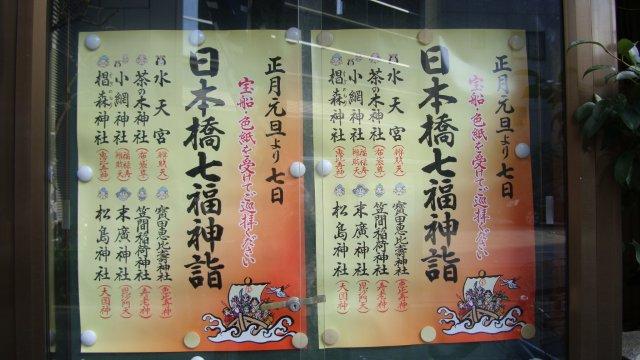 正月元旦より七日
宝船・色紙を受けてご巡拝ください
日本橋七福神詣
水天宮(辨財天)
茶の木神社(布袋尊)
小網神社(福禄寿 辨財天)
椙森神社(恵比寿神)
寶田恵比壽神社(恵比寿神)
笠間稲荷神社(寿老神)
末廣神社(毘沙門天)
松島神社(大国神)
正月元旦より七日
宝船・色紙を受けてご巡拝ください
日本橋七福神詣
水天宮(辨財天)
茶の木神社(布袋尊)
小網神社(福禄寿 辨財天)
椙森神社(恵比寿神)
寶田恵比壽神社(恵比寿神)
笠間稲荷神社(寿老神)
末廣神社(毘沙門天)
松島神社(大国神)